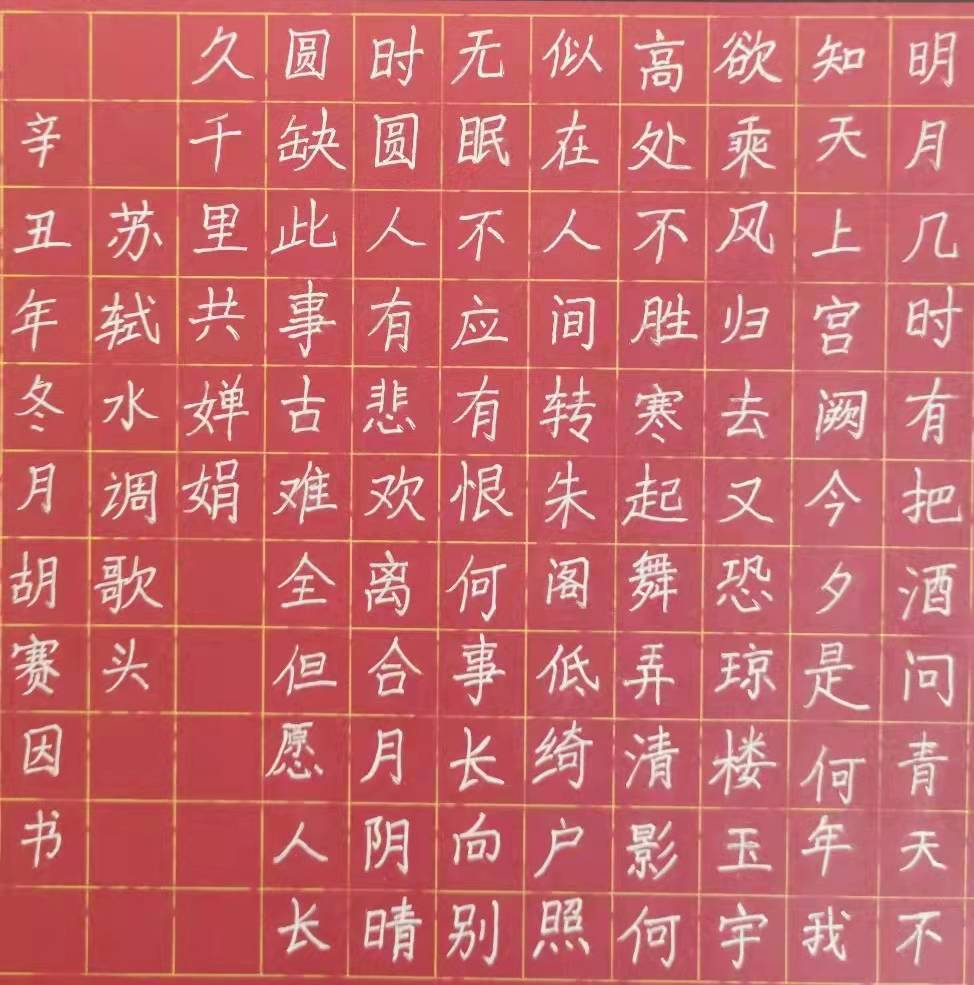 明月几时有把酒问青天不
知天上宫阙今夕是何年我
欲乘风归去又恐琼楼玉宇
高处不胜寒起舞弄清影何
似在人间转朱阁低绮户照
无眠不应有恨何事长向别
时圆人有悲欢离合月阴晴
圆缺此事古难全但愿人长
久千里共婵娟
苏轼水调歌头
辛丑年冬月胡赛因书